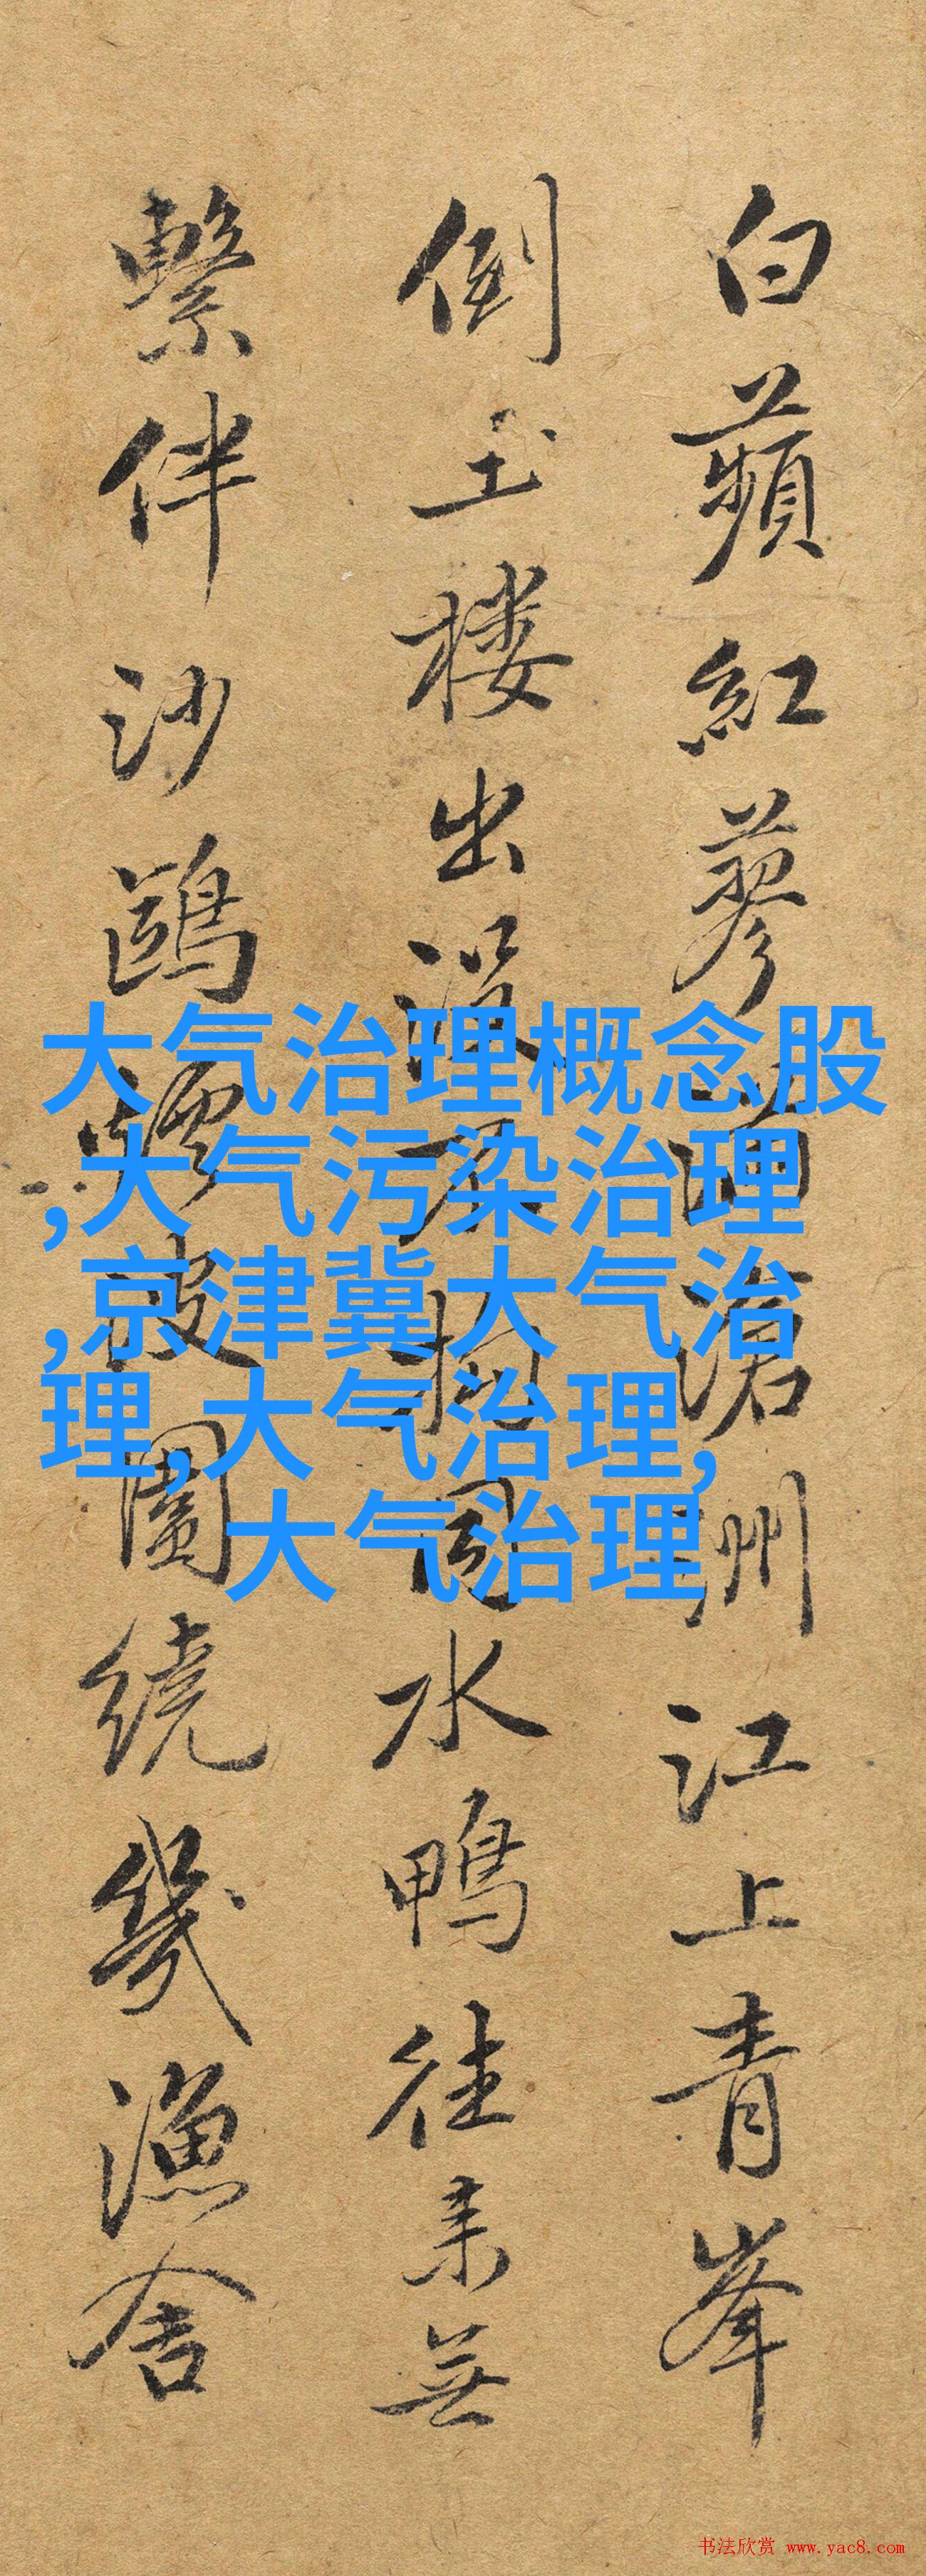 白蘋紅蓼滿滄洲江上青峯
倒玉楼出没不拘同水鴨往来無
繫伴沙鷗煙波圍繞幾漁舍
大气治理概念股
,大气污染治理
,京津冀大气治
理,大气治理,
大气治理
书法欣赏 www.yac8.com